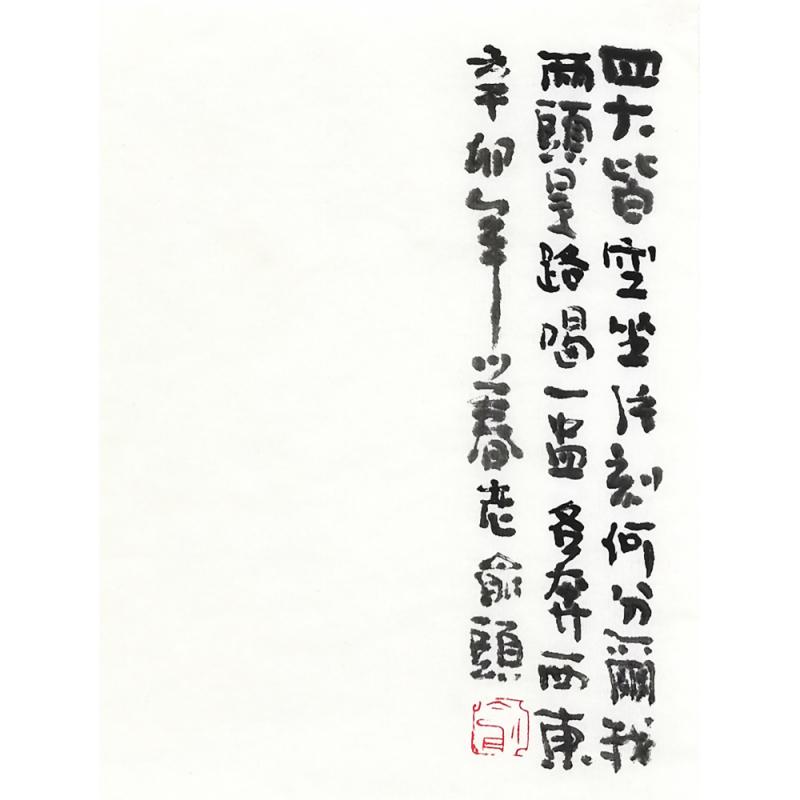 四大皆空坐片刻何分爾我
兩頭是路喝一盅各奔西東
辛卯年之春老俞頭